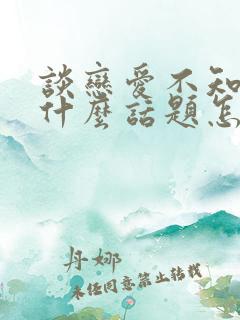 談戀愛不知
什麼話題怎
丹娜
未經同意禁止轉載